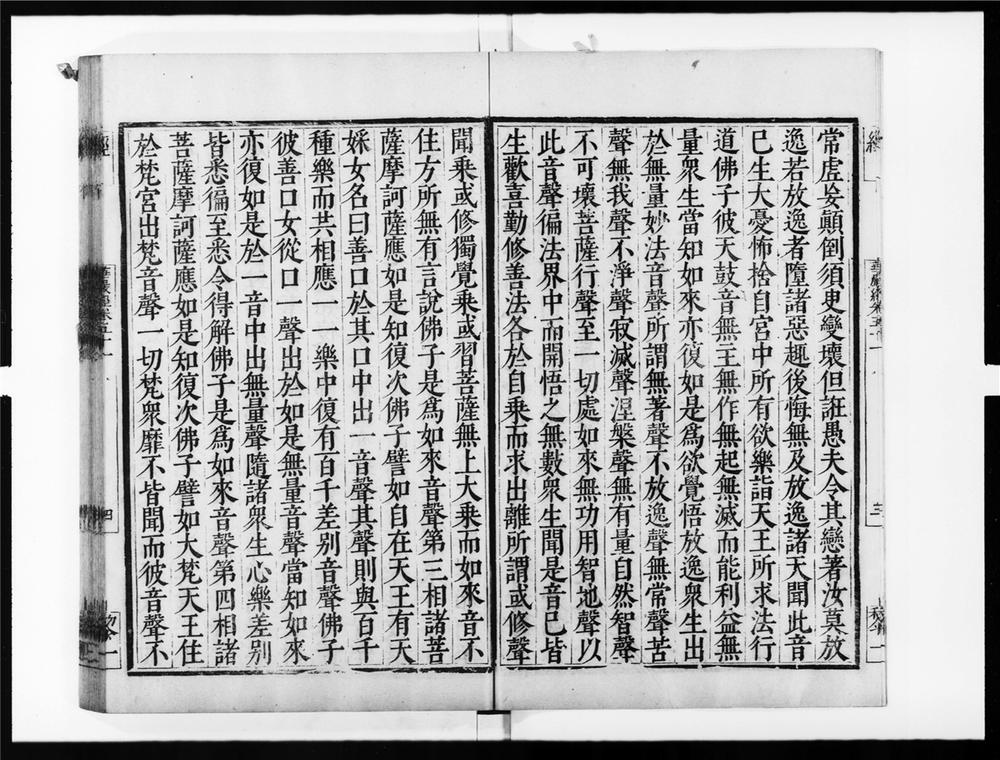 常虛妄顛倒須臾變壞但誑愚夫令其戀著汝莫放
逸若放逸者墮諸惡趣後悔無及放逸諸天聞此音
已生大憂怖捨自宮中所有欲樂詣天王所求法行
道佛子彼天鼓音無主無作無起無滅而能利益無
量衆生當知如來亦復如是爲欲覺悟放逸衆生出
於無量妙法音聲所謂無著聲不放逸聲無常聲苦
聲無我聲不淨聲寂滅聲涅槃聲無有量自然智聲
不可壞菩薩行聲至一切處如來無功用智地聲以
此音聲徧法界中而開悟之無數衆生聞是音已皆
生歡喜勤修善法各於自乘而求出離所謂或修聲
聞乘或修獨覺乘或習菩薩無上大乘而如來音不
住方所無有言說佛子是爲如來音聲第三相諸菩
薩摩訶薩應如是知復次佛子譬如自在天王有天
婇女名曰善口於其口中出一音聲其聲則與百千
種樂而共相應一一樂中復有百千差别音聲佛子
彼善口女從口一聲出於如是無量音聲當知如來
亦復如是於一音中出無量聲隨諸衆生心樂差别
皆悉徧至悉令得解佛子是爲如來音聲第四相諸
菩薩摩訶薩應如是知復次佛子譬如大梵天王住
於梵宮出梵音聲一切梵衆靡不皆聞而彼音聲不